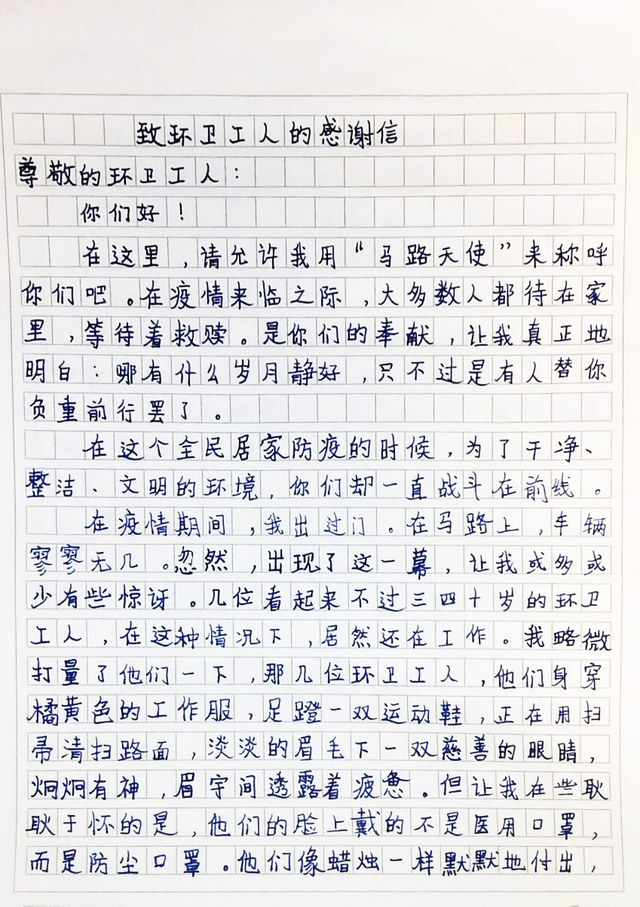 致环卫工人的感谢信
尊敬的环卫工人：
你们好！
在这里，请允许我用“马路天使”来称呼
你们吧。在疫情来临之际，大多数人都待在家
里，等待着救赎。是你们的奉献，让我真正地
明白：哪有什么岁月静好，只不过是有人替你
负重前行罢了。
在这个全民居家防疫的时候，为了干净、
整洁、文明的环境，你们却一直战斗在前线。
在疫情期间，我出过门。在马路上，车辆
寥寥无几。忽然，出现了这一幕，让我或多或
少有些惊讶。几位看起来不过三四十岁的环卫
工人，在这种情况下，居然还在工作。我略微
打量了他们一下，那几位环卫工人，他们身穿
橘黄色的工作服，足蹬一双运动鞋，正在用扫
帚清扫路面，淡淡的眉毛下一双慈善的眼睛，
炯炯有神，眉宇间透露着疲惫。但让我在些耿
耿于怀的是，他们的脸上戴的不是医用口罩，
而是防尘口罩。他们像蜡烛一样默默地付出，